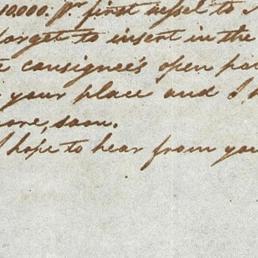 10,000. Pr first vessel to
forget to insert in the
consignee's open po
your place and I,
more, soon.
I hope to hear from you